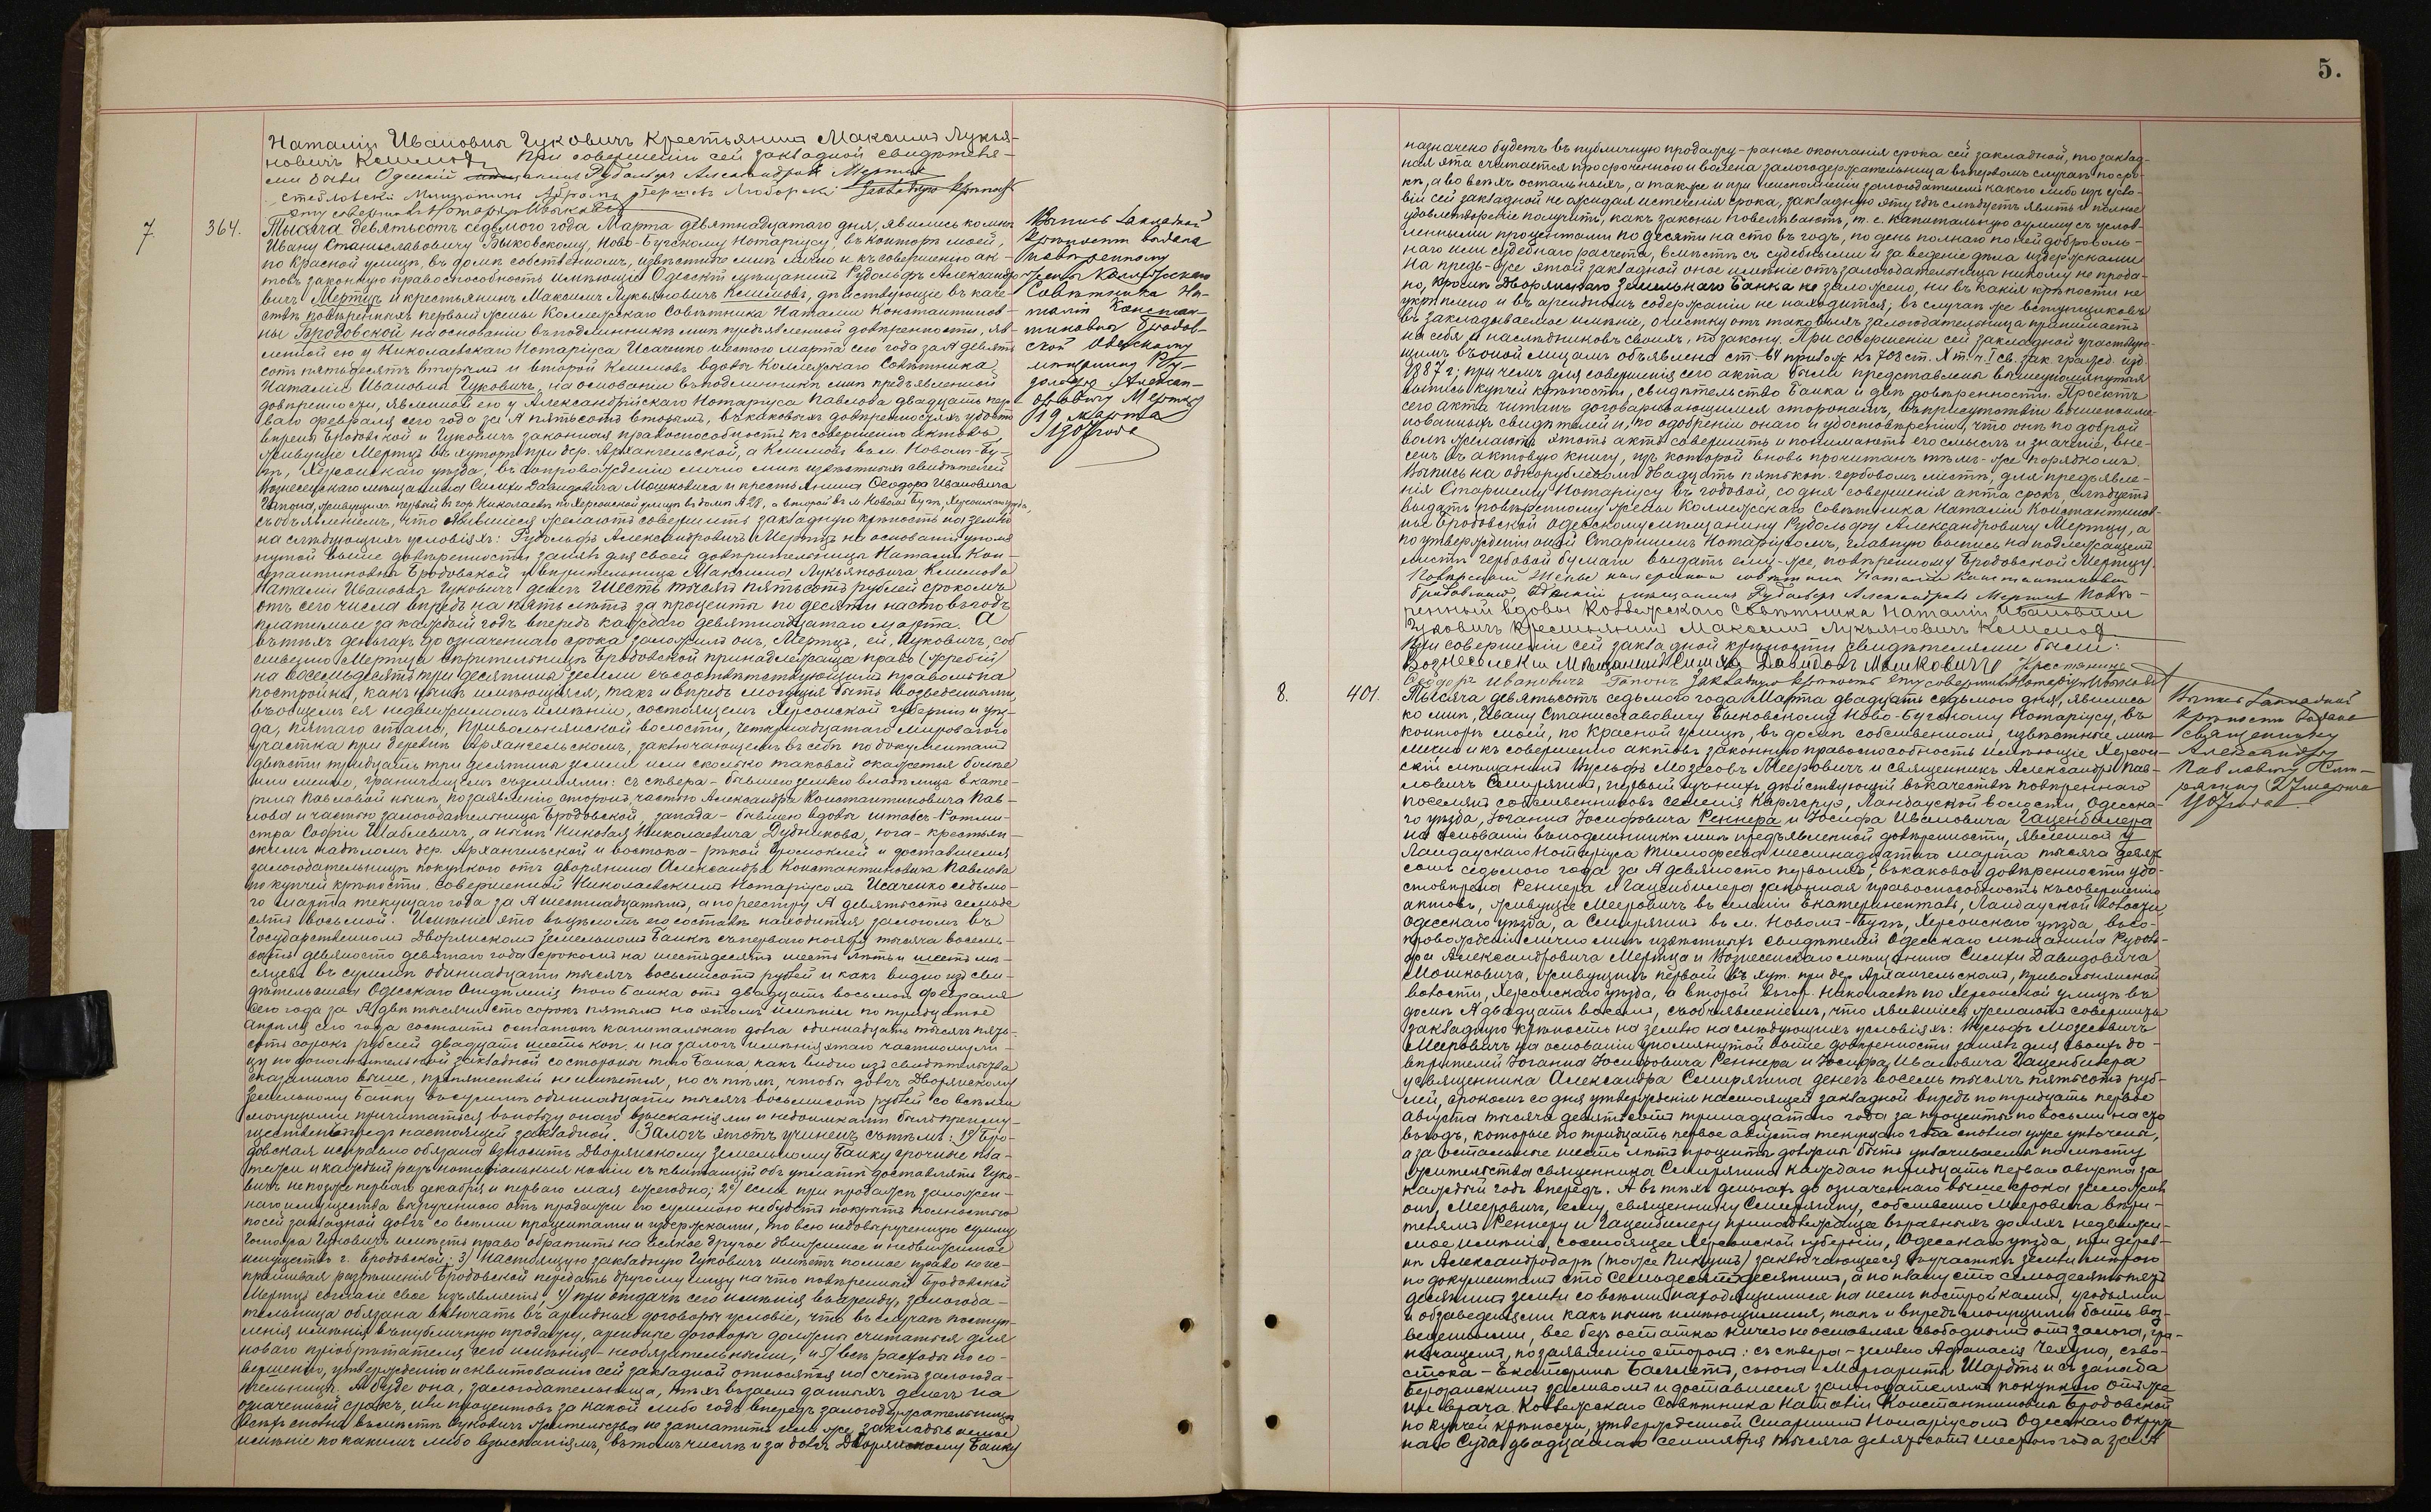 Наталіи Ивановны Чуковичъ Крестьянинъ Максимъ Лукья-
новичъ Клименовъ При совершеніи сей закладной свидѣтеля-
ми были Одесскій мѣщанинъ Рудольфъ Александровъ Мертцъ
мѣщанинъ Абрамъ Гершевъ Любарскій Закладную крѣпость
эту совершилъ Нотаріусъ Быковскій
7
364.
Тысяча девятьсотъ седьмого года Марта девятнадцатаго дня, явились ко мнѣ
Ивану Станиславовичу Быковскому, Ново-Бугскому Нотаріусу, въ конторѣ моей,
по Красной улицѣ, въ домѣ собственномъ, извѣстные мнѣ лично и къ совершенію ак-
товъ законную правоспособность имѣющіе Одесскій мѣщанинъ Рудольфъ Александро-
вичъ Мертцъ и крестьянинъ Максимъ Лукьяновичъ Клименовъ, дѣйствующіе въ каче-
ствѣ повѣренныхъ первый жены Коллежскаго Совѣтника Наталіи Константинов-
ны Бродовской на основаніи въ подлинникѣ мнѣ предъявленной довѣренности, яв-
ленной ею у Николаевскаго Нотаріуса Исаченко шестого марта сего года за № девять
сотъ пятьдесятъ вторымъ и второй Клименовъ вдовы Коллежскаго Совѣтника
Наталіи Ивановны Чуковичъ, на основаніи въ подлинникѣ мнѣ предъявленной
довѣренности, явленной ею у Александрійскаго Нотаріуса Павлова двадцать пер-
ваго февраля сего года за № пятьсотъ вторымъ, въ каковыхъ довѣренностяхъ удосто-
вѣрена Бродовской и Чуковичъ законная правоспособность къ совершенію актовъ,
живущіе Мертцъ въ хуторѣ при дер. Архангельской, а Клименовъ въ м. Новомъ-Бу-
гѣ, Херсонскаго уѣзда, въ сопровожденіи лично мнѣ извѣстныхъ свидѣтелей
Вознесенскаго мѣщанина Симхи Давидовича Мошковича и крестьянина Ѳеодора Ивановича
Гапона, живущихъ первый въ гор. Николаевѣ по Херсонской улицѣ въ домѣ № 28, а второй въ м. Новомъ Бугѣ, Херсонскаго уѣзда,
съ объявленіемъ, что явившіеся желаютъ совершить закладную крѣпость на землю
на слѣдующихъ условіяхъ: Рудольфъ Александровичъ Мертцъ на основаніи упомя-
нутой выше довѣренности занялъ для своей довѣрительницы Наталіи Кон-
стантиновны Бродовской у вѣрительницы Максима Лукьяновича Клименова
Наталіи Ивановны Чуковичъ денегъ шесть тысячъ пятьсотъ рублей срокомъ
отъ сего числа впредь на пять лѣтъ за проценты по десяти на сто въ годъ
платимые за каждый годъ впередъ каждаго девятнадцатаго марта. А
въ тѣхъ деньгахъ до означеннаго срока заложилъ онъ, Мертцъ, ей, Чуковичъ, соб-
ственно Мертца вѣрительницѣ Бродовской принадлежащее право (жребій)
на восемьдесятъ три десятины земли съ соотвѣтствующимъ правомъ на
постройки, какъ нынѣ имѣющіяся, такъ и впредь могущія быть возведенными
въ общемъ ея недвижимомъ имѣніи, состоящемъ Херсонской губерніи и уѣз-
да, пятаго стана, Привольнянской волости, четырнадцатаго мироваго
участка при деревнѣ Архангельской, заключающемъ въ себѣ по документамъ
двѣсти тридцать три десятины земли или сколько таковой окажется болѣе
или менѣе, граничащемъ съ землями: съ сѣвера - бывшею землею владѣлицы Екате-
рины Павловой нынѣ, по заявленію сторонъ, частью Александра Константиновича Пав-
лова и частью залогодательницы Бродовской, запада - бывшею вдовы штабсъ-Ротми-
стра Софіи Шаблевичъ, а нынѣ Николая Николаевича Дубникова, юга - крестьян-
скимъ надѣломъ дер. Архангельской и востока - рѣкой Громоклеей и доставшемся
залогодательницѣ покупкою отъ дворянина Александра Константиновича Павлова
по купчей крѣпости, совершенной Николаевскимъ Нотаріусомъ Исаченко седьмо-
го марта текущаго года за № шестнадцатымъ, а по реестру № девятьсотъ семьде-
сятъ восьмой. Имѣніе это въ цѣломъ его составѣ находится залогомъ въ
Государственномъ Дворянскомъ Земельномъ Банкѣ съ перваго ноября тысяча восемь-
сотъ девяносто девятаго года срокомъ на шестьдесятъ шесть лѣтъ и шесть мѣ-
сяцевъ въ суммѣ одиннадцати тысячъ восьмисотъ рублей и какъ видно изъ сви-
дѣтельства Одесскаго Отдѣленія того Банка отъ двадцать восьмого февраля
сего года за № двѣ тысячи сто сорокъ пятымъ на этомъ имѣніи по тридцатое
апрѣля сего года состоитъ остатокъ капитальнаго долга одиннадцать тысячъ пять-
сотъ сорокъ рублей двадцать шесть коп. и на залогъ имѣнія этого частному ли-
цу по дополнительной закладной со стороны того Банка, какъ видно изъ свидѣтельства
сказаннаго выше, препятствій не имѣется, но съ тѣмъ, чтобы долгъ Дворянскому
Земельному Банку въ суммѣ одиннадцати тысячъ восьмисотъ рублей со всѣми
могущими причитаться въ пользу онаго взысканіями и недоимками былъ преиму-
щественъ предъ настоящей закладной. Залогъ этотъ учиненъ съ тѣмъ: 1) Бро-
довская исправно обязана взносить Дворянскому Земельному Банку срочные пла-
тежи и каждый разъ нотаріальныя копіи съ квитанцій объ уплатѣ доставлять Чуко-
вичъ не позже перваго декабря и перваго мая ежегодно; 2) если при продажѣ заложен-
наго имущества вырученною отъ продажи его суммою не будетъ покрытъ полностью
по сей закладной долгъ со всѣми процентами и издержками, то всю недовырученную сумму
Госпожа Чуковичъ имѣетъ право обратить на всякое другое движимое и недвижимое
имущество г. Бродовской; 3) Настоящую закладную Чуковичъ имѣетъ полное право не ис-
прашивая разрѣшенія Бродовской передать другому лицу на что повѣренный Бродовской
Мертцъ согласіе свое изъявляетъ; 4) при отдачѣ сего имѣнія въ аренду, залогода-
тельница обязана включать въ арендные договоры условіе, что въ случаѣ поступ-
ленія имѣнія въ публичную продажу, арендные договоры должны считаться для
новаго пріобрѣтателя сего имѣнія - необязательными, и 5) всѣ расходы по со-
вершенію, утвержденію и сквитованію сей закладной относятся на счетъ залогода-
тельницы. А буде она, залогодательница, тѣхъ взаемъ данныхъ денегъ на
означенный срокъ, или процентовъ за какой либо годъ впередъ залогодержательницѣ
всѣхъ сполна въ мѣстѣ Чуковичъ жительства не заплатитъ или же закладываемое
имѣніе по какимъ либо взысканіямъ, въ томъ числѣ и за долгъ Дворянскому Банку
Выпись закладной
крѣпости выдана
повѣренному
жены Коллежскаго
Совѣтника На-
таліи Констан-
тиновны Бродов-
ской Одесскому
мѣщанину Ру-
дольфу Алексан-
дровичу Мертцу
19 марта
1907 года
5.
назначено будетъ въ публичную продажу - ранѣе окончанія срока сей закладной, то заклад-
ная эта считается просроченною и вольна залогодержательница въ первомъ случаѣ по сро-
кѣ, а во всѣхъ остальныхъ, а также и при неисполненіи залогодателемъ какого либо изъ усло-
вій сей закладной не ожидая истеченія срока, закладную эту гдѣ слѣдуетъ явить и полное
удовлетвореніе получить, какъ законы повелѣваютъ, т. е. капитальную сумму съ услов-
ленными процентами по десяти на сто въ годъ, по день полнаго по ней доброволь-
наго или судебнаго расчета, вмѣстѣ съ судебными и за веденіе дѣла издержками
На предь-же этой закладной оное имѣніе отъ залогодательницы никому не прода-
но, кромѣ Дворянскаго Земельнаго Банка не заложено, ни въ какія крѣпости не
укрѣплено и въ арендномъ содержаніи не находится; въ случаѣ же вступщиковъ
въ закладываемое имѣніе, очистку отъ таковыхъ залогодательница принимаетъ
на себя и наслѣдниковъ своихъ, по закону. При совершеніи сей закладной участвую-
щимъ въ оной лицамъ объявлена ст. 64 прилож. къ 708 ст. X т. ч. I св. зак. гражд. изд.
1887 г; при чемъ для совершенія сего акта были представлены вышеупомянутыя
выпись купчей крѣпости, свидѣтельство Банка и двѣ довѣренности. Проектъ
сего акта читанъ договаривающимся сторонамъ, въ присутствіи вышепоиме-
нованныхъ свидѣтелей и, по одобреніи онаго и удостовѣреніи, что они по доброй
волѣ желаютъ этотъ актъ совершить и понимаютъ его смыслъ и значеніе, вне-
сенъ въ актовую книгу, изъ которой вновь прочитанъ тѣмъ-же порядкомъ.
Выпись на однорублевомъ двадцать пяти коп. гербовомъ листѣ, для предъявле-
нія Старшему Нотаріусу въ годовой, со дня совершенія акта срокъ, слѣдуетъ
выдать повѣренному жены Коллежскаго Совѣтника Наталіи Константинов-
ны Бродовской Одесскому мѣщанину Рудольфу Александровичу Мертцу, а
по утвержденіи оной Старшимъ Нотаріусомъ, главную выпись на подлежащемъ
листѣ гербовой бумаги выдать ему-же, повѣренному Бродовской Мертцу.
Повѣренный Жены коллежскаго совѣтника Наталіи Константиновны
Бродовской, Одесскій мѣщанинъ Рудольфъ Александровъ Мертцъ Повѣ-
ренный вдовы Коллежскаго Совѣтника Наталіи Ивановны
Чуковичъ крестьянинъ Максимъ Лукьяновичъ Клименовъ
При совершеніи сей закладной крѣпости свидѣтелями были:
Вознесенскій Мѣщанинъ Симха Давидовъ Мошковичъ Крестьянинъ
Ѳеодоръ Ивановичъ Гапонъ Закладную крѣпость эту совершилъ Нотаріусъ Быковскій
8.
401.
Тысяча девятьсотъ седьмого года Марта двадцать седьмого дня, явились
ко мнѣ, Ивану Станиславовичу Быковскому Ново-Бугскому Нотаріусу, въ
конторѣ моей, по Красной улицѣ, въ домѣ собственномъ, извѣстные мнѣ
лично и къ совершенію актовъ законную правоспособность имѣющіе, Херсон-
скій мѣщанинъ Вульфъ Мозесовъ Мееровичъ и священникъ Александръ Пав-
ловичъ Смирягинъ, первый изъ нихъ дѣйствующій въ качествѣ повѣреннаго
поселянъ собственниковъ селенія Карлсруэ, Ландауской волости, Одесска-
го уѣзда, Іоганна Іосифовича Реннера и Іосифа Ивановича Гаценбилера
на основаніи въ подлинникѣ мнѣ предъявленной довѣренности, явленной у
Ландаускаго Нотаріуса Тимофеева шестнадцатаго марта тысяча девять
сотъ седьмого года за № девяносто первымъ, въ каковой довѣренности удо-
стовѣрена Реннера и Гаценбилера законная правоспособность къ совершенію
актовъ, живущіе Мееровичъ въ селеніи Екатериненталь, Ландауской волости,
Одесскаго уѣзда, а Смирягинъ въ м. Новомъ-Бугѣ, Херсонскаго уѣзда, въ со-
провожденіи лично мнѣ извѣстныхъ свидѣтелей Одесскаго мѣщанина Рудоль-
фа Александровича Мертца и Вознесенскаго мѣщанина Симхи Давидовича
Мошковича, живущихъ первый въ хут. при дер. Архангельской, Привольнянской
волости, Херсонскаго уѣзда, а второй въ гор. Николаевѣ по Херсонской улицѣ въ
домѣ № двадцать восемь, съ объявленіемъ, что явившіеся желаютъ совершить
закладную крѣпость на землю на слѣдующихъ условіяхъ: Вульфъ Мозесовичъ
Мееровичъ на основаніи упомянутой выше довѣренности занялъ для своихъ до-
вѣрителей Іоганна Іосифовича Реннера и Іосифа Ивановича Гаценбилера
у священника Александра Смирягина денегъ восемь тысячъ пятьсотъ руб-
лей, срокомъ со дня утвержденія настоящей закладной впредь по тридцать первое
августа тысяча девятьсотъ тринадцатаго года за проценты по восьми на сто
въ годъ, которые по тридцать первое августа текущаго года сполна уже уплочены,
а за остальные шесть лѣтъ проценты должны быть уплачиваемы по мѣсту
жительства священника Смирягина каждаго тридцать перваго августа за
каждый годъ впередъ. А въ тѣхъ деньгахъ до означеннаго выше срока заложилъ
онъ, Мееровичъ, ему, священнику Смирягину, собственно Мееровича вѣри-
телямъ Реннеру и Гаценбилеру принадлежащее въ равныхъ доляхъ недвижи-
мое имѣніе, состоящее Херсонской губерніи, Одесскаго уѣзда, при дерев-
нѣ Александродаръ (тоже Пикушъ) заключающееся въ участкѣ земли мѣрою
по документамъ сто семьдесятъ десятинъ, а по плану сто семьдесятъ пять
десятинъ земли со всѣми находящимися на немъ постройками, угодьями
и обзаведеніями какъ нынѣ имѣющимися, такъ и впредь могущими быть воз-
веденными, все безъ остатка ничего не оставляя свободнымъ отъ залога, гра-
ничащемъ, по заявленію сторонъ: съ сѣвера - землею Афанасія Чехуна, съ во-
стока - Екатерины Басгетъ, съ юга - Маргариты Шардтъ и съ запада
Березанскимъ заливомъ и доставшееся залогодателямъ покупкою отъ же-
ны врача Коллежскаго Совѣтника Наталіи Константиновны Бродовской
по купчей крѣпости, утвержденной Старшимъ Нотаріусомъ Одесскаго Окруж-
наго Суда двадцатаго сентября тысяча девятьсотъ шестого года за №
Выпись закладной
крѣпости выдана
священнику
Александру
Павловичу Сми-
рягину 27 марта
1907 года